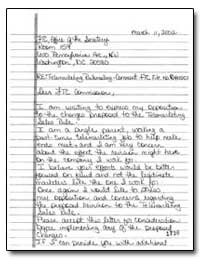 March 11, 2002
FTC, Office of the Secretary
Room 159
600 Pennsylvania Ave., NW
Washington, DC 20580
RE: Telemarketing Rulemaking-Comment FTC File No.
Dear FTC Commission,
I am writing to express my opposition
to the changes proposed to the Telemarketing
Sales Rule.
I am a single parent, working a
part time telemarketing job to help make
ends meet and I am very concern
about the effect the revision might have
on the company I work for.
I believe your efforts would be better
focused on fraud and not the legitimate
marketers like the one I work for.
Once again, I would like to stress
my opposition and concerns regarding
the proposed revision to the Telemarketing
Sales Rule.
Please accept this letter for consideration
before implementing any of the proposed
changes.
If I can provide you with additional